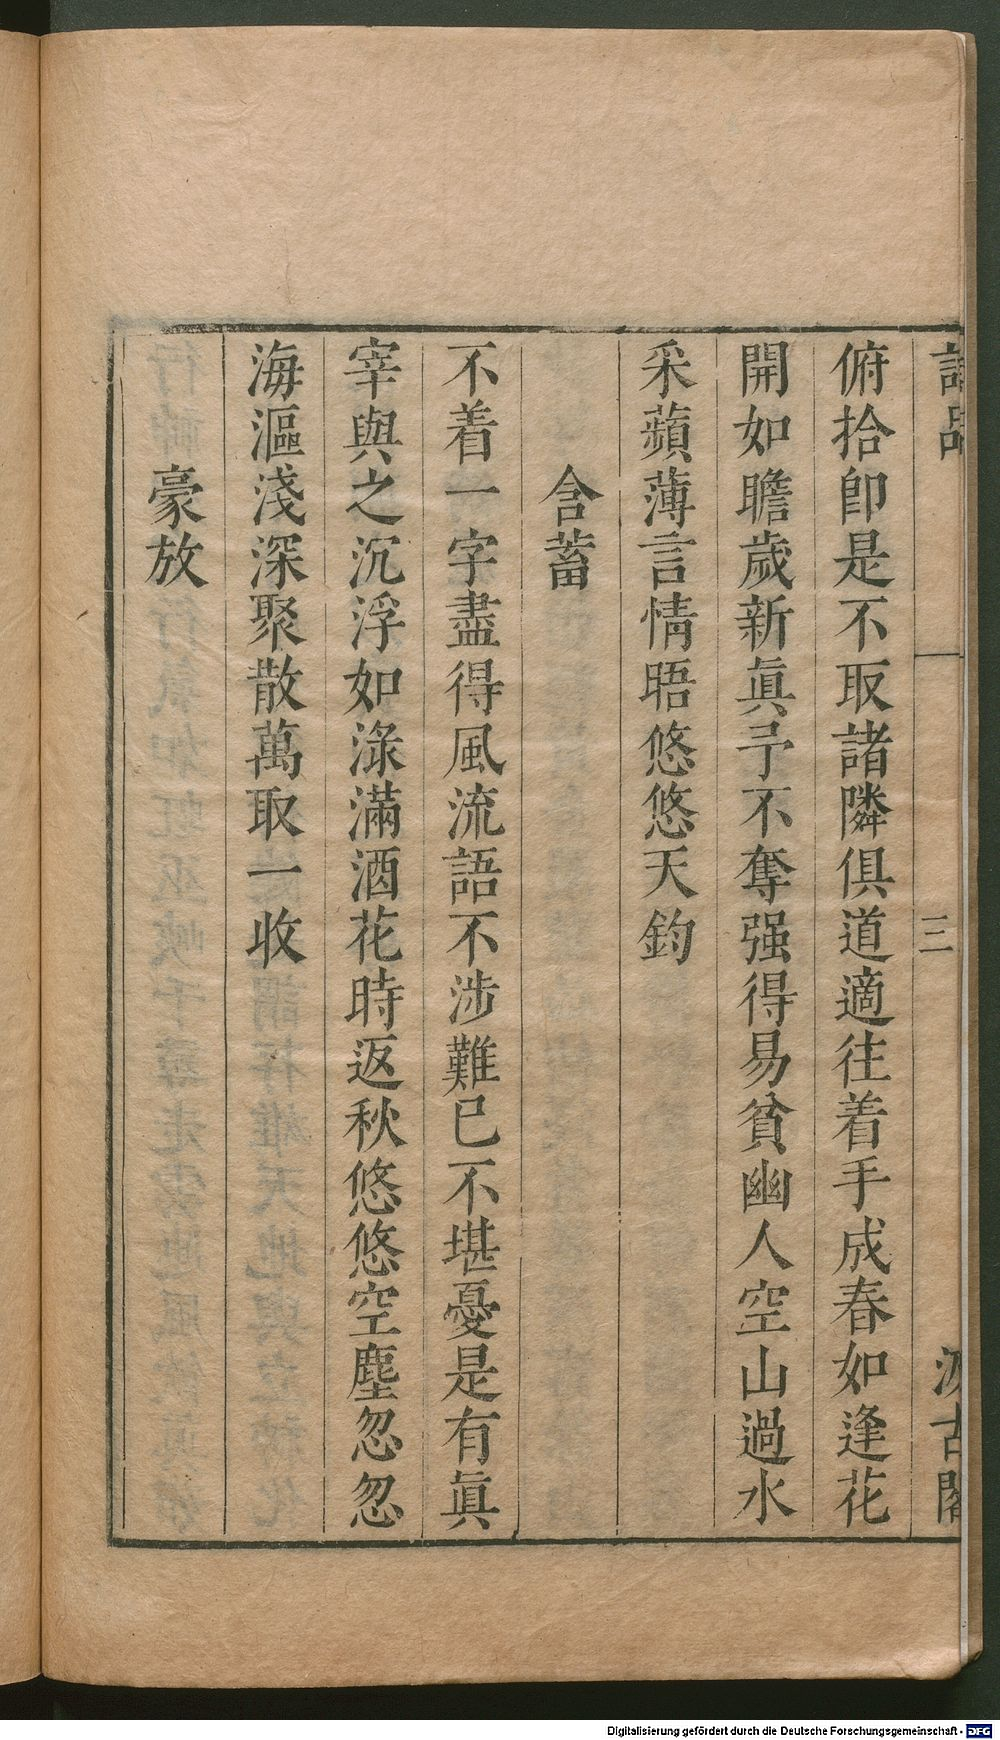 詩品
三
汲古閣
俯拾卽是不取諸隣俱道適往着手成春如逢花
開如瞻歲新眞予不奪强得易貧幽人空山過水
采蘋薄言情晤悠悠天鈞
含蓄
不着一字盡得風流語不涉難已不堪憂是有眞
宰與之沉浮如淥滿酒花時返秋悠悠空塵忽忽
海漚淺深聚散萬取一收
豪放
Digitalisierung gefördert durch die Deutsche Forschungsgemeinschaft - DFG